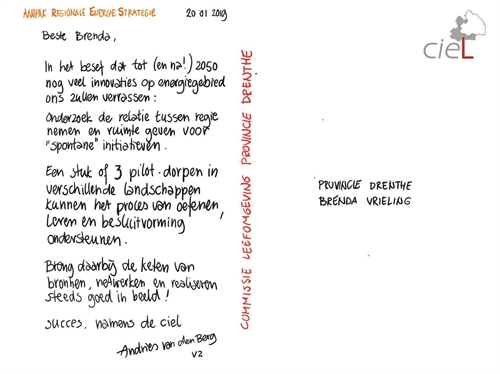 AANPAK REGIONALE ENERGIE STRATEGIE 20 01 2019
Beste Brenda,
In het besef dat tot (en na!) 2050
nog veel innovaties op energiegebied
ons zullen verrassen:
Onderzoek de relatie tussen regie
nemen en ruimte geven voor
"spontane" initiatieven.
Een stuk of 3 pilot-dorpen in
verschillende landschappen
kunnen het proces van oefenen,
leren en besluitvorming
ondersteunen.
Breng daarbij de keten van
bronnen, netwerken en realiseren
steeds goed in beeld!
succes, namens de ciel
Andries van den Berg
VZ
COMMISSIE LEEFOMGEVING PROVINCIE DRENTHE
cieL
PROVINCIE DRENTHE
BRENDA VRIELING